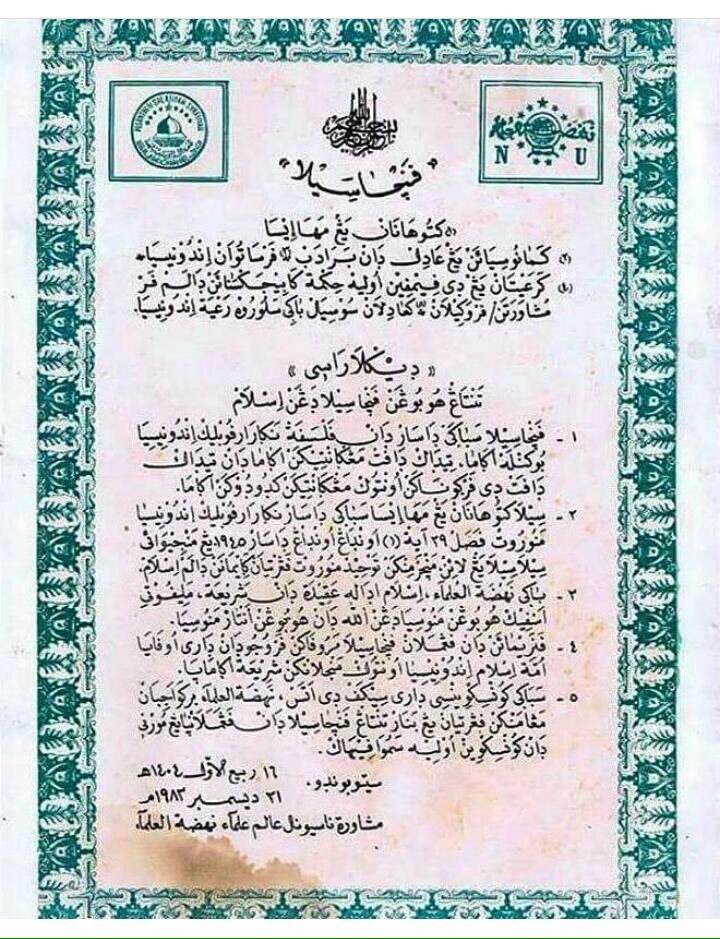 بسم الله الرحمن الرحيم
N U
"ڤنچاسيلا"
(١) كتوهانان يڠ مها ايسا
(٢) كمانوسيائن يڠ عاديل دان برادب (٣) ڤرساتوان إندونيسيا
(٤) كرعيتان يڠ دي ڤيمڤين اوليه حكمة كبيجكسنائن دالم ڤر
مشاورتن/ ڤرواكيلان (٥) كعاديلان سوسيال باكي سلوروه رعية إندونيسيا.
«ديكلاراسي»
تنتاڠ هوبوڠن ڤنچاسيلا دڠن إسلام
١ - ڤنچاسيلا سباكي داسار دان فلسفة نكارا رڤوبليك إندونيسيا
بوكنله أكاما، تيداك داڤت مڠكانتيكن أكاما دان تيداك
داڤت دي ڤركوناكن أونتوك مڠكانتيكن كدودوكن أكاما.
٢ - سيلا كتوهانان يڠ مها إيسا سباكي داسار نكارا رڤوبليك إندونيسيا
منوروت فصل ٢٩ أية (١) أوندڠ أوندڠ داسار ١٩٤٥، يڠ منجيوائي
سيلا سيلا يڠ لائن، منچرمنكن توحيد منوروت ڤڠرتيان كإيمانن دالم إسلام.
٣ - باكي نهضة العلماء، إسلام اداله عقيدة دان شريعة، مليڤوتي
أسڤيك هوبوڠن منوسيا دڠن الله دان هوبوڠن أنتار منوسيا.
٤ - ڤنريمائن دان ڤڠملان ڤنچاسيلا مروڤاكن ڤروجودان داري أوڤايا
أمة إسلام إندونيسيا أونتوك منجلانكن شريعة أكامايا.
٥ - سباكي كونسكوينسي داري سيكف دي اتس، نهضة العلماء بركواجيبان
مڠامنكن ڤڠرتيان يڠ بنار تنتاڠ ڤنچاسيلا دان ڤڠملانيا يڠ مورني
دان كونسكوين أوليه سموا ڤيهاك.
سيتوبوندو، ١٦ ربيع الأول ١٤٠٤هـ
٢١ ديسمبر ١٩٨٣مـ
مشاورة ناسيونل عالم علماء نهضة العلماء